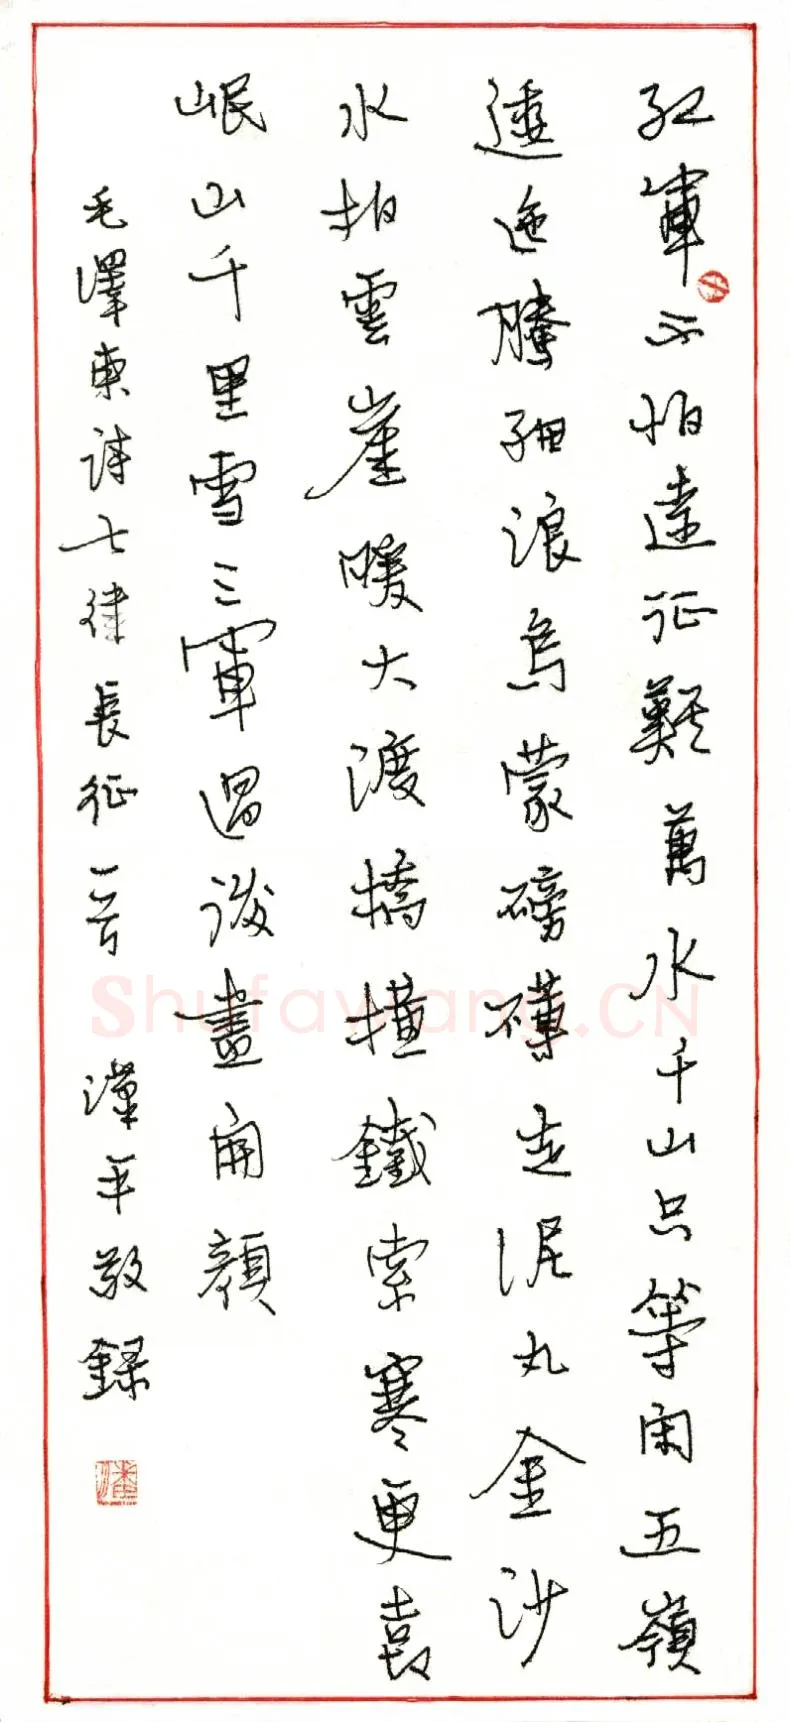 紅軍不怕遠征難萬水千山只等閑五嶺
逶迤騰細浪烏蒙磅礴走泥丸金沙
水拍雲崖暖大渡橋橫鐵索寒更喜
岷山千里雪三軍過後盡開顏
毛澤東詩七律長征一首 漢平敬錄
潘
Shufawang.CN